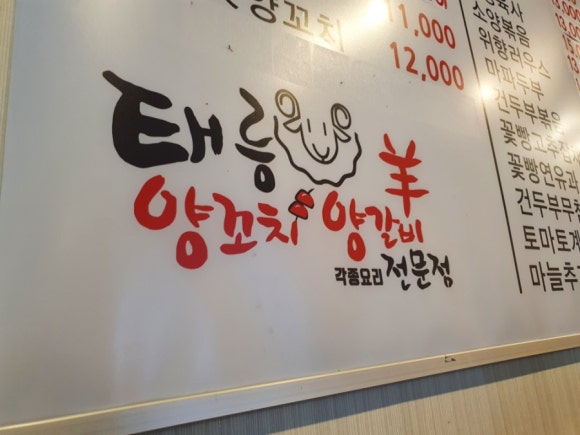 양꼬치
11,000
12,000
태릉
羊
양꼬치 양갈비
각종요리 전문점
소양볶음
위향러우스
마파두부
건두부볶음
꽃빵고추잡채
꽃빵연유과
건두부무침
토마토계
마늘추